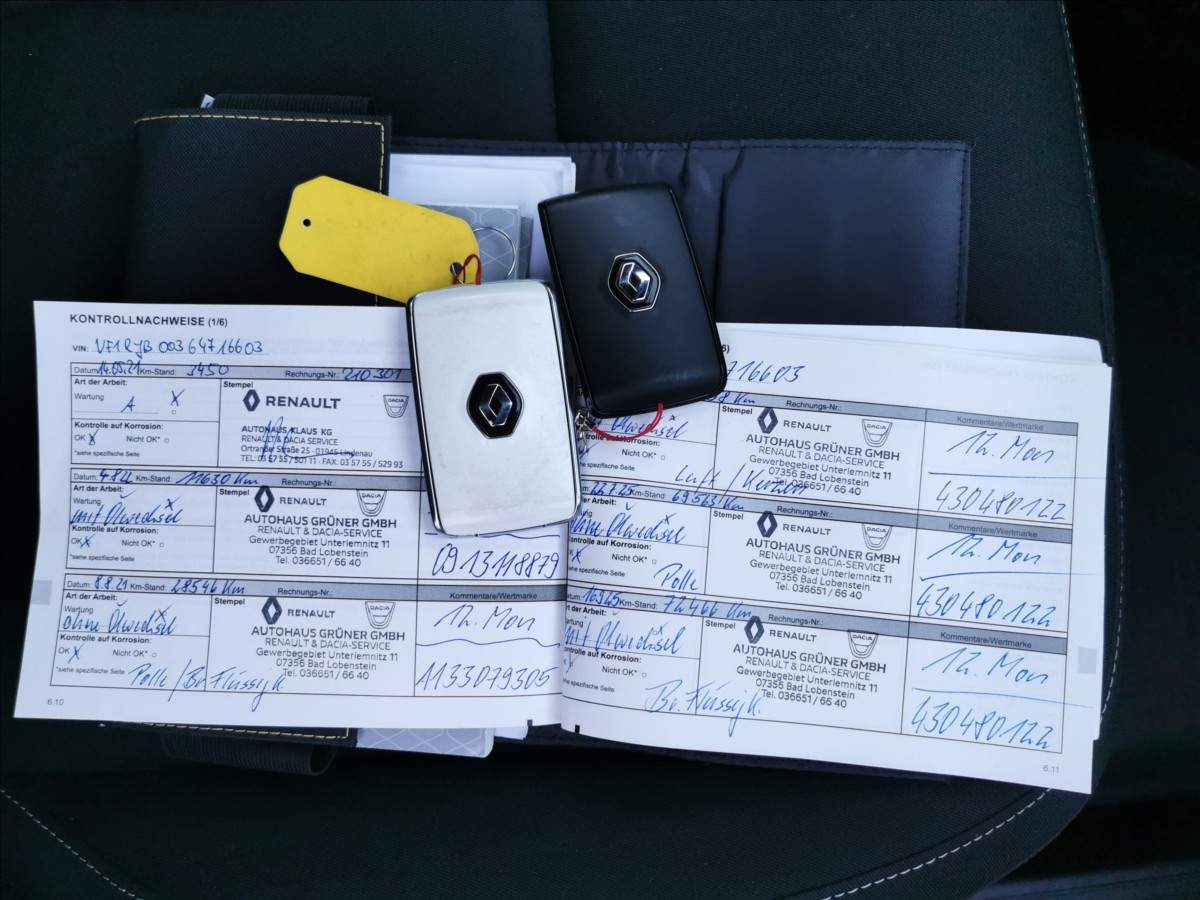 KONTROLLNACHWEISE (1/6)
VIN: VF1RJB 003 64716603
Datum: 14.05.21 Km-Stand: 3450 Rechnungs-Nr.: 210301
Art der Arbeit:
Stempel
Wartung X
A
RENAULT
DACIA
Kontrolle auf Korrosion:
OK X Nicht OK*
*siehe spezifische Seite
AUTOHAUS KLAUS KG
RENAULT & DACIA SERVICE
Ortrander Straße 25 · 01945 Lindenau
TEL: 03 57 55 / 501 11 · FAX: 03 57 55 / 529 93
Km-Stand: 11630 Km Rechnungs-Nr.:
Art der Arbeit:
Stempel
Wartung X
mit Ölwechsel
Kontrolle auf Korrosion:
OK X Nicht OK*
*siehe spezifische Seite
RENAULT
DACIA
AUTOHAUS GRÜNER GMBH
RENAULT & DACIA-SERVICE
Gewerbegebiet Unterlemnitz 11
07356 Bad Lobenstein
Tel. 036651 / 66 40
0913118879
Datum: Km-Stand: 28546 Km Rechnungs-Nr.:
Kommentare/Wertmarke
Art der Arbeit:
Stempel
Wartung X
ohne Ölwechsel
Kontrolle auf Korrosion:
OK X Nicht OK*
*siehe spezifische Seite
Polle/Br. Flüssigk.
RENAULT
DACIA
AUTOHAUS GRÜNER GMBH
RENAULT & DACIA-SERVICE
Gewerbegebiet Unterlemnitz 11
07356 Bad Lobenstein
Tel. 036651 / 66 40
12. Mon
1133079305
6.10
6)
716603
Km Rechnungs-Nr.:
Kommentare/Wertmarke
Stempel
Ölwechsel
ntrolle auf Korrosion:
Nicht OK*
siehe spezifische Seite
Luft/
RENAULT
DACIA
AUTOHAUS GRÜNER GMBH
RENAULT & DACIA-SERVICE
Gewerbegebiet Unterlemnitz 11
07356 Bad Lobenstein
Tel. 036651 / 66 40
12. Mon
430480122
Km-Stand: 69563 Km Rechnungs-Nr.:
Kommentare/Wertmarke
Stempel
ohne Ölwechsel
Kontrolle auf Korrosion:
Nicht OK*
siehe spezifische Seite
Polle
RENAULT
DACIA
AUTOHAUS GRÜNER GMBH
RENAULT & DACIA-SERVICE
Gewerbegebiet Unterlemnitz 11
07356 Bad Lobenstein
Tel. 036651 / 66 40
12. Mon
430480122
Km-Stand: 72466 Km Rechnungs-Nr.:
Kommentare/Wertmarke
Art der Arbeit:
Stempel
mit Ölwechsel
Kontrolle auf Korrosion:
Nicht OK*
siehe spezifische Seite
Br. Flüssigk.
RENAULT
DACIA
AUTOHAUS GRÜNER GMBH
RENAULT & DACIA-SERVICE
Gewerbegebiet Unterlemnitz 11
07356 Bad Lobenstein
Tel. 036651 / 66 40
12. Mon
430480122
6.11